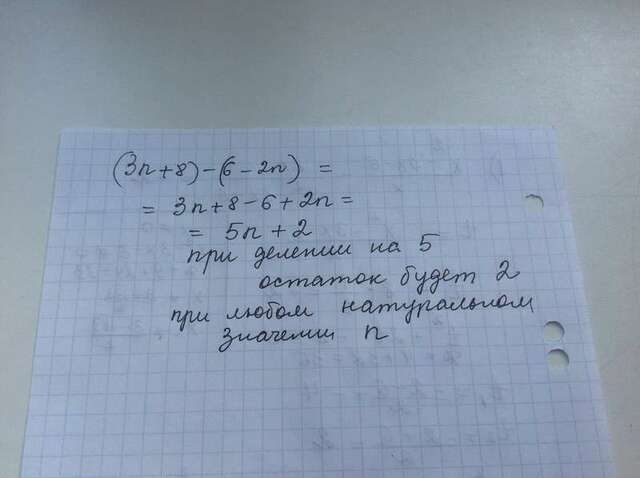 (3n+8)-(6-2n) =
= 3n+8-6+2n =
= 5n+2
при делении на 5
остаток будет 2
при любом натуральном
значении n